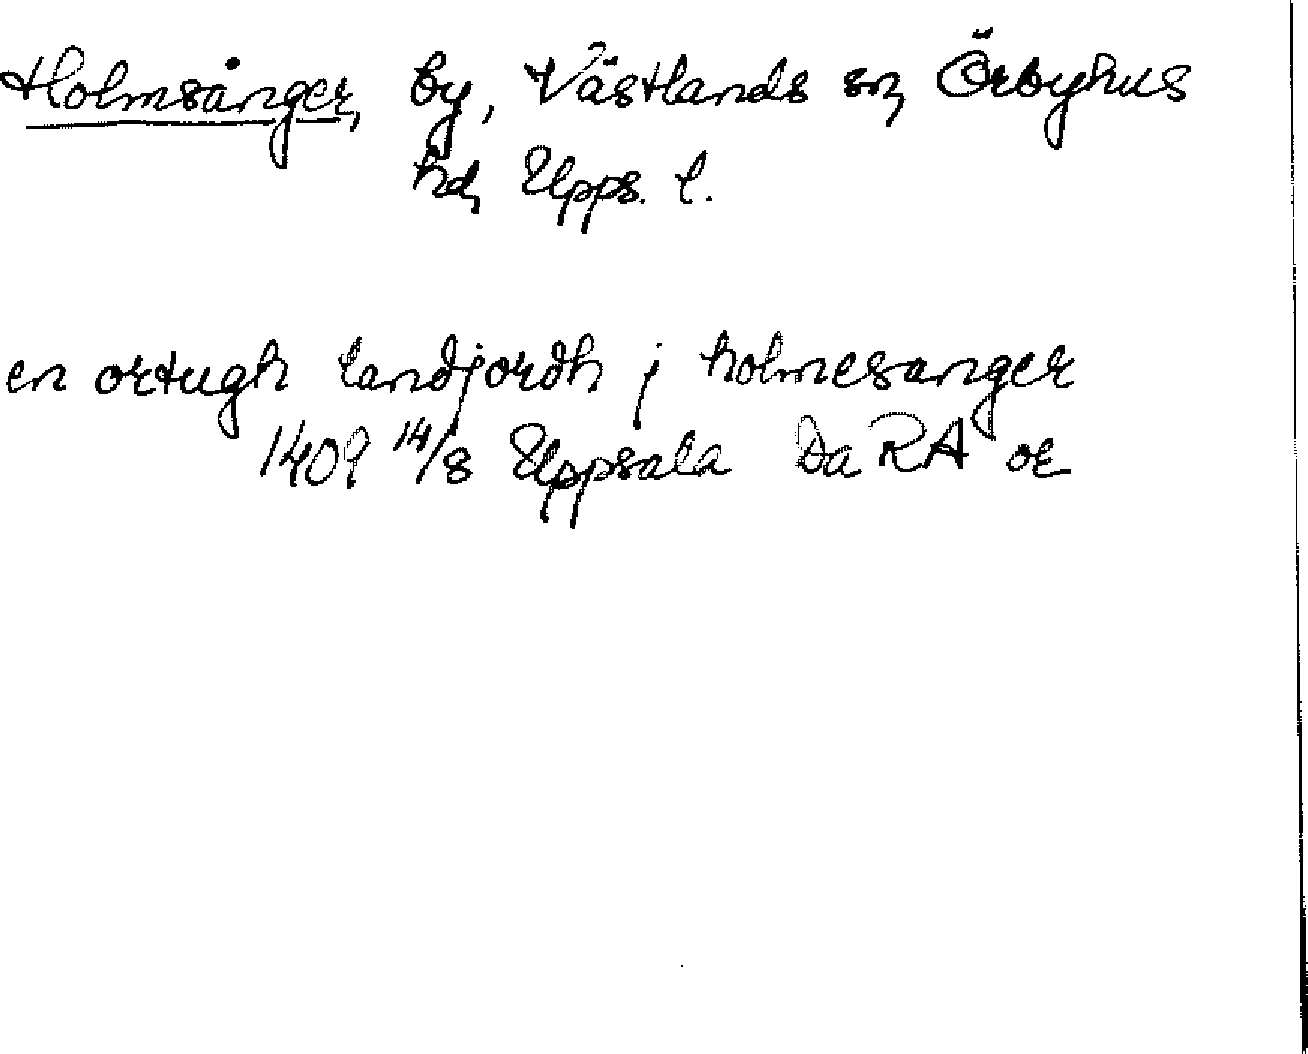 Holmsånger, by, Västlands sn, Örbyhus
hd, Upps. l.
en ortugh landjordh j holmesanger
1409 14/8 Uppsala Da RA or